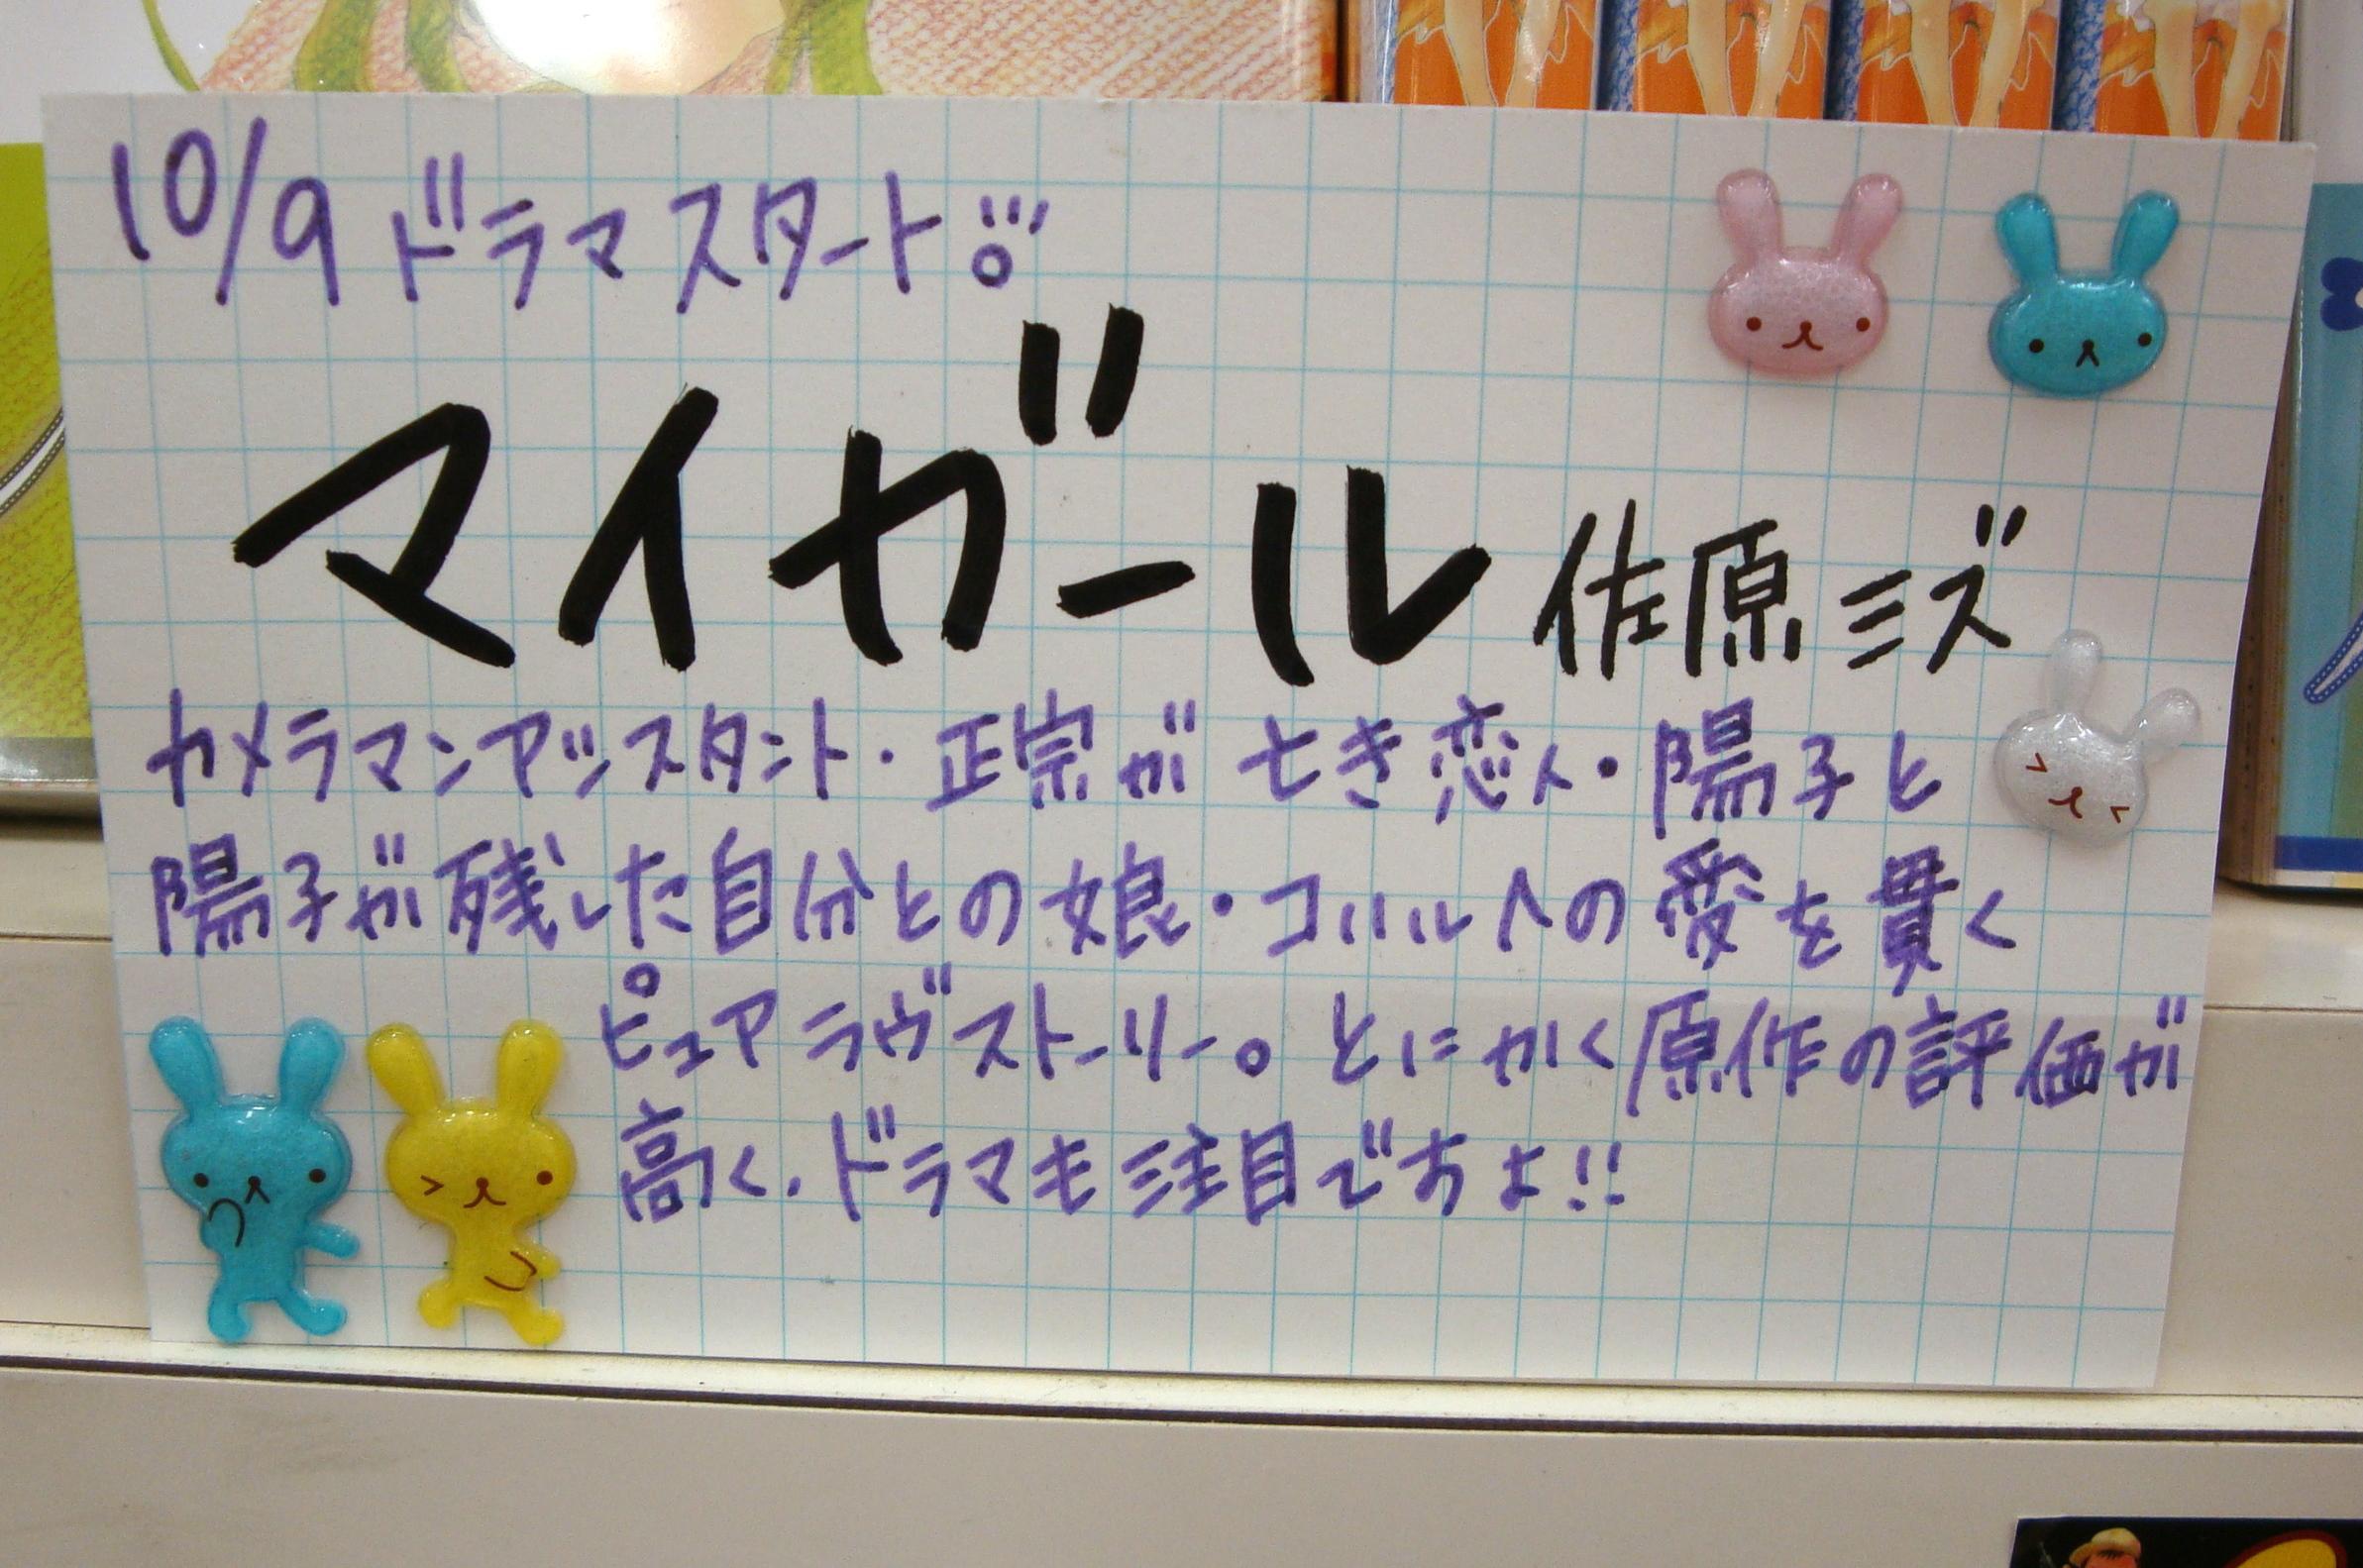 10/9 ドラマスタート!!!
マイガール 佐原ミズ
カメラマンアシスタント・正宗が 亡き恋人・陽子と
陽子が残した自分との娘・コハルへの愛を貫く
ピュアラヴストーリー。とにかく原作の評価が
高く、ドラマも注目ですよ!!